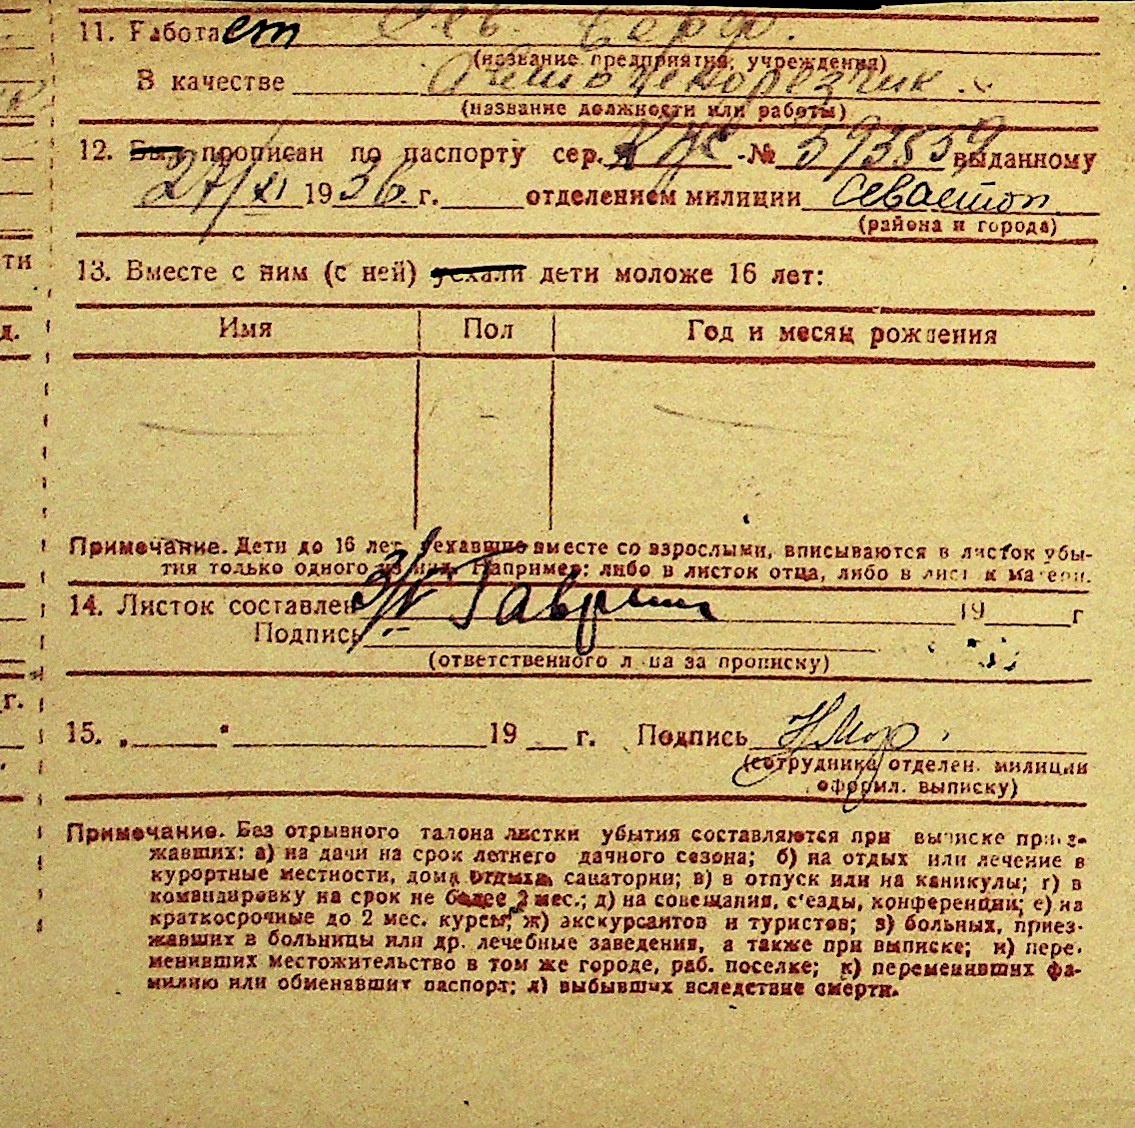 11. Работает Сев.
(название предприятия, учреждения)
В качестве
(название должности или работы)
12. Был прописан по паспорту сер. -№ 593559 выданному
27/XI 1936 г. отделением милиции Севастоп
(района и города)
13. Вместе с ним (с ней) уехали дети моложе 16 лет:
Имя Пол Год и месяц рождения
- - -
Примечание. Дети до 16 лет, уехавшие вместе со взрослыми, вписываются в листок убы-
тия только одного из них. Например: либо в листок отца, либо в лист к матери.
14. Листок составлен 19 г
Подпись
(ответственного лица за прописку)
15. „ " 19 г. Подпись
(сотрудника отделен. милиции
оформл. выписку)
Примечание. Без отрывного талона листки убытия составляются при выписке приез-
жавших: а) на дачи на срок летнего дачного сезона; б) на отдых или лечение в
курортные местности, дома отдыха, санатории; в) в отпуск или на каникулы; г) в
командировку на срок не более 2 мес.; д) на совещания, с'езды, конференции; е) на
краткосрочные до 2 мес. курсы; ж) экскурсантов и туристов; з) больных, приез-
жавших в больницы или др. лечебные заведения, а также при выписке; и) пере-
менивших местожительство в том же городе, раб. поселке; к) переменивших фа-
милию или обменявших паспорт; л) выбывших вследствие смерти.